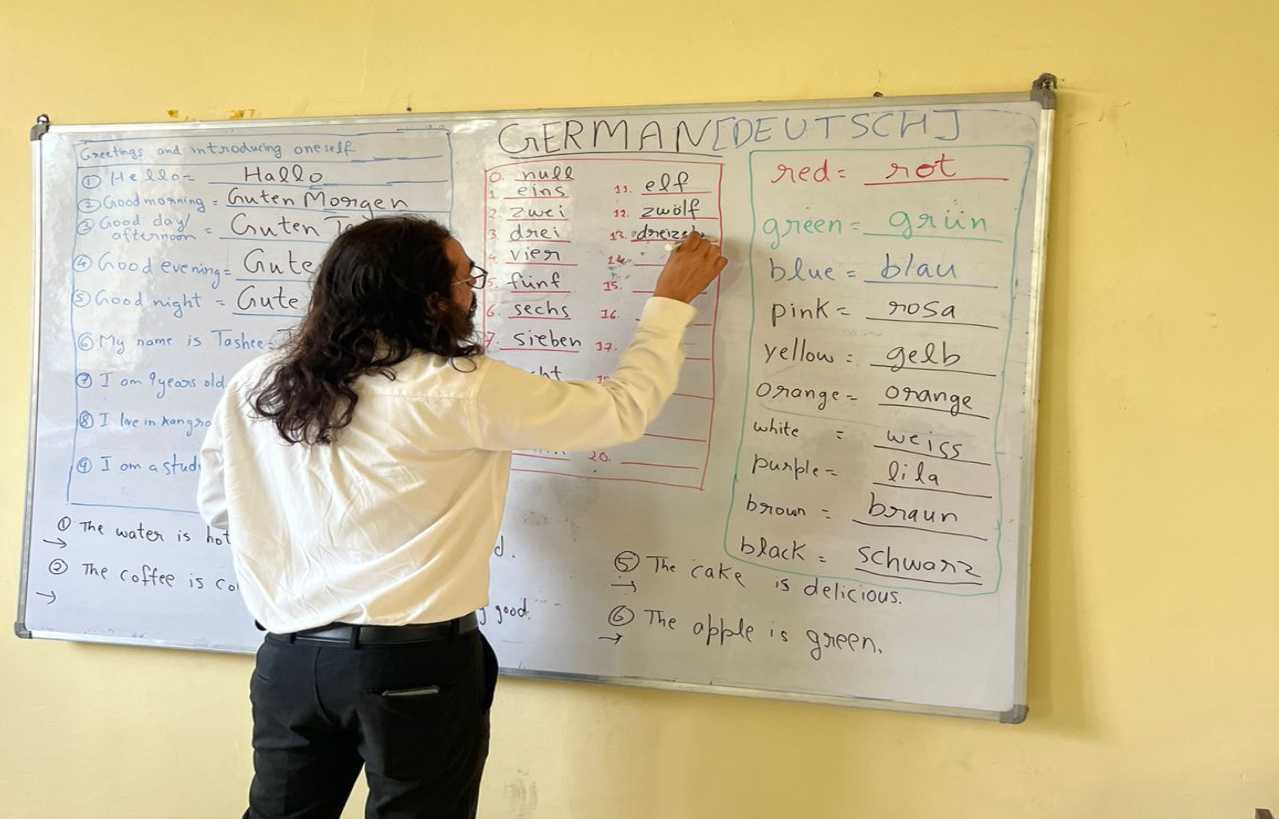 GERMAN [DEUTSCH]
Greetings and introducing oneself
① Hello = Hallo
② Good morning = Guten Morgen
③ Good day/
afternoon = Guten
④ Good evening = Gute
⑤ Good night = Gute
⑥ My name is Tashee =
⑦ I am 9 years old
⑧ I live in kangra
⑨ I am a stud
0. null
1. eins
2. zwei
3. drei
4. vier
5. fünf
6. sechs
7. sieben
cht
11. elf
12. zwölf
13. dreizeh
14.
15.
16.
17.
20.
red = rot
green = grün
blue = blau
pink = rosa
yellow = gelb
orange = orange
white = weiss
purple = lila
brown = braun
black = schwarz
① The water is hot
→
② The coffee is co
→
d.
good.
⑤ The cake is delicious.
→
⑥ The apple is green.
→